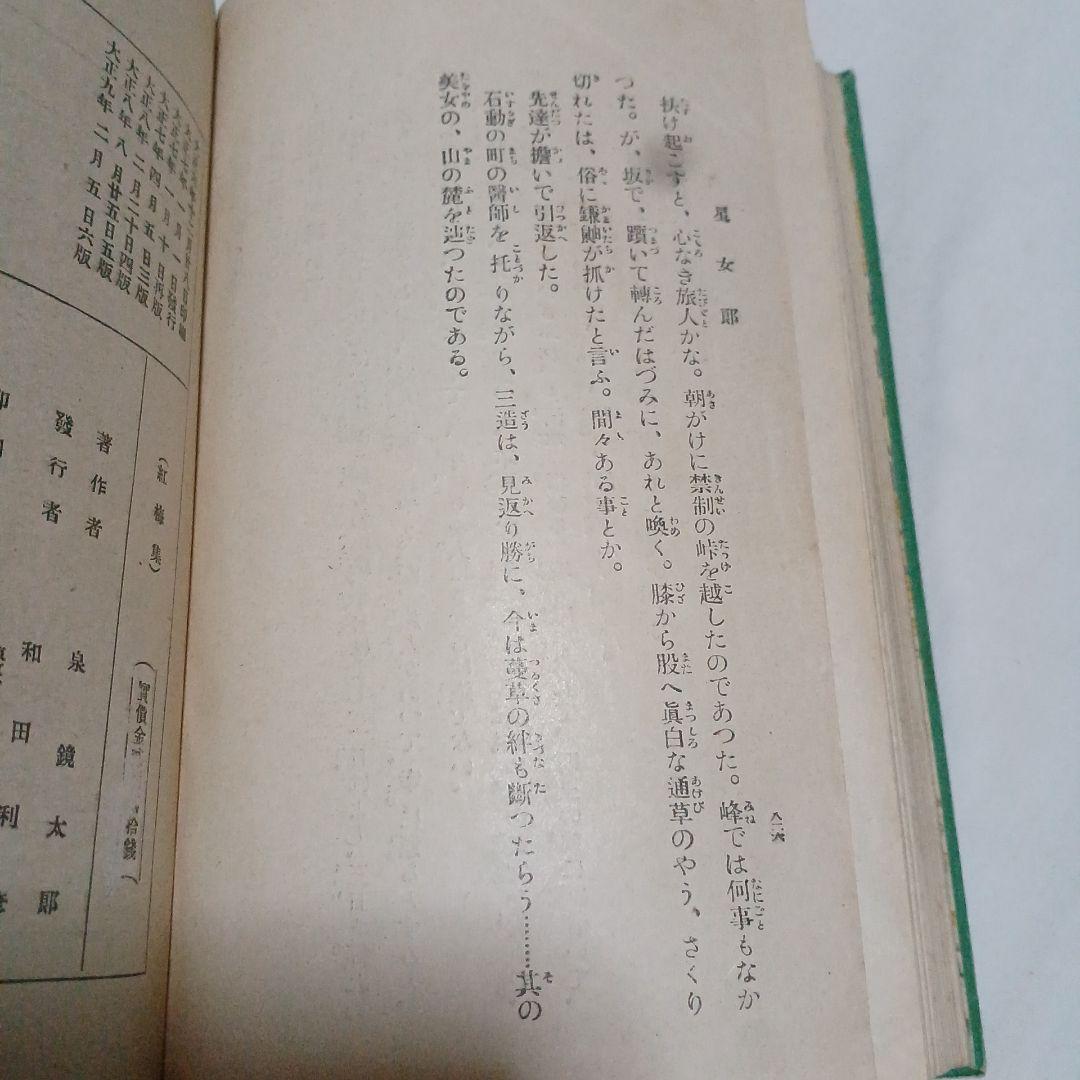 星女郎
八二六
扶け起こすと、心なき旅人かな。朝がけに禁制の峠を越したのであつた。峰では何事もなか
つた。が、坂で、躓いて轉んだはづみに、あれと喚く。膝から股へ眞白な通草のやう、さくり
切れたは、俗に鎌鼬が抓けたと言ふ。間々ある事とか。
先達が擔いで引返した。
石動の町の醫師を托りながら、三造は、見返り勝に、今は蔓草の絆も斷つたらう………其の
美女の、山の麓を辿つたのである。
大正七年四月五日三版
大正八年二月二十日四版
大正八年八月廿五日五版
大正九年二月五日六版
(紅梅集)
拾錢
著作者 泉鏡太郎
發行者 和田利彦